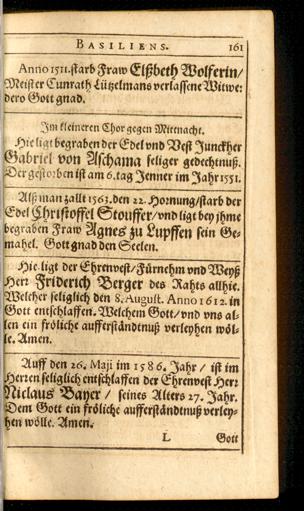 BASILIENS. 161
Anno 1511. starb Fraw Elßbeth Wolferin/
Meister Cunrath Lützelmans verlassene Witwe:
dero Gott gnad.
Im kleineren Chor gegen Mittnacht.
Hie ligt begraben der Edel und Vest Junckher
Gabriel von Aschama seliger gedechtnuß.
Der gestorben ist am 6. tag Jenner im Jahr 1551.
Alß man zallt 1563. den 22. Hornung/starb der
Edel Christoffel Stouffer/und ligt bey ihme
begraben Fraw Agnes zu Lupffen sein Ge-
mahel. Gott gnad den Seelen.
Hie ligt der Ehrenvest/Fürnehm und Weyß
Herr Friderich Berger des Rahts allhie.
Welcher seliglich den 8. August. Anno 1612. in
Gott entschlaffen. Welchem Gott/und uns al-
len ein fröliche aufferständtnuß verleyhen wöl-
le. Amen.
Auff den 26. Maji im 1586. Jahr / ist im
Herren seliglich entschlaffen der Ehrenvest Herr
Niclaus Bayer / seines Alters 27. Jahr.
Dem Gott ein fröliche aufferständtnuß verley-
hen wölle. Amen.
L Gott